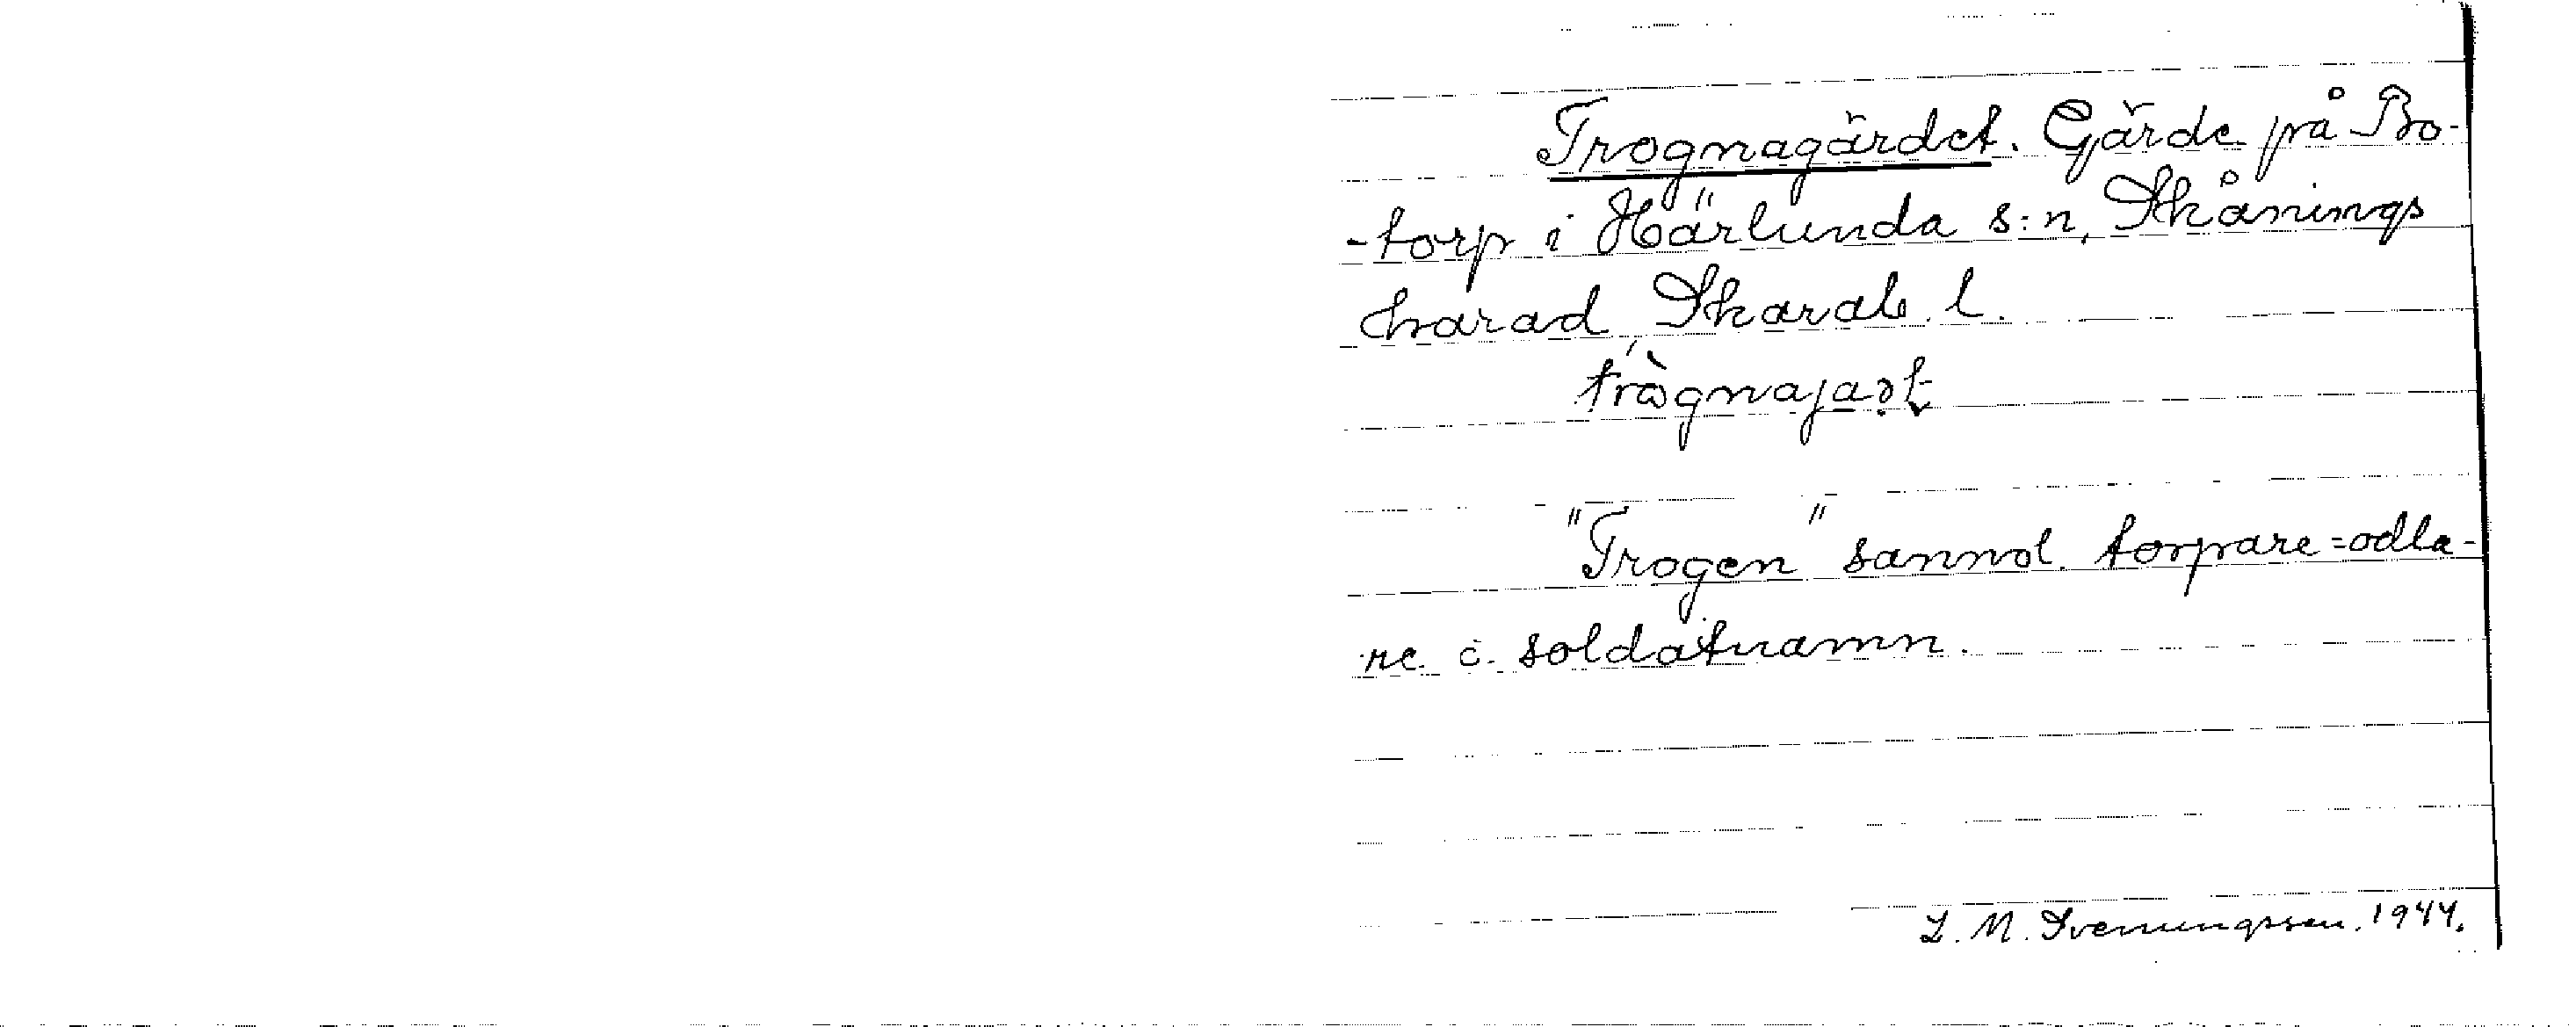 Trognagärdet. Gärde på Bo-
-torp i Härlunda s:n, Skånings
harad, Skarab. l.
"Trogen" sannol. torpare=odla-
re o. soldatnamn.
L. M. Svenungssen. 1944.